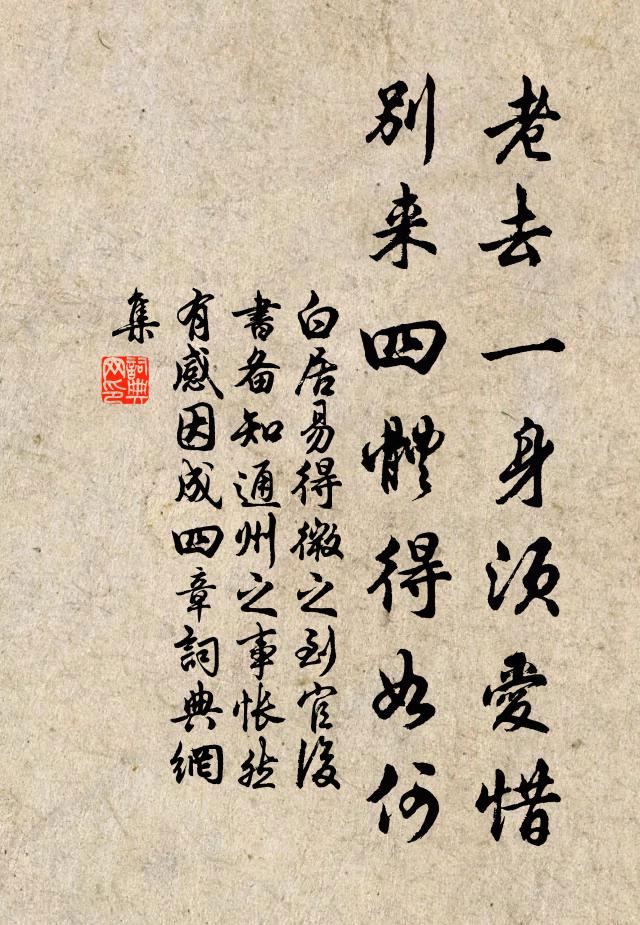 老去一身須愛惜
別来四體得如何
白居易得微之到官後
書备知通州之事悵然
有感因成四章詞典網
集
詞典
网印